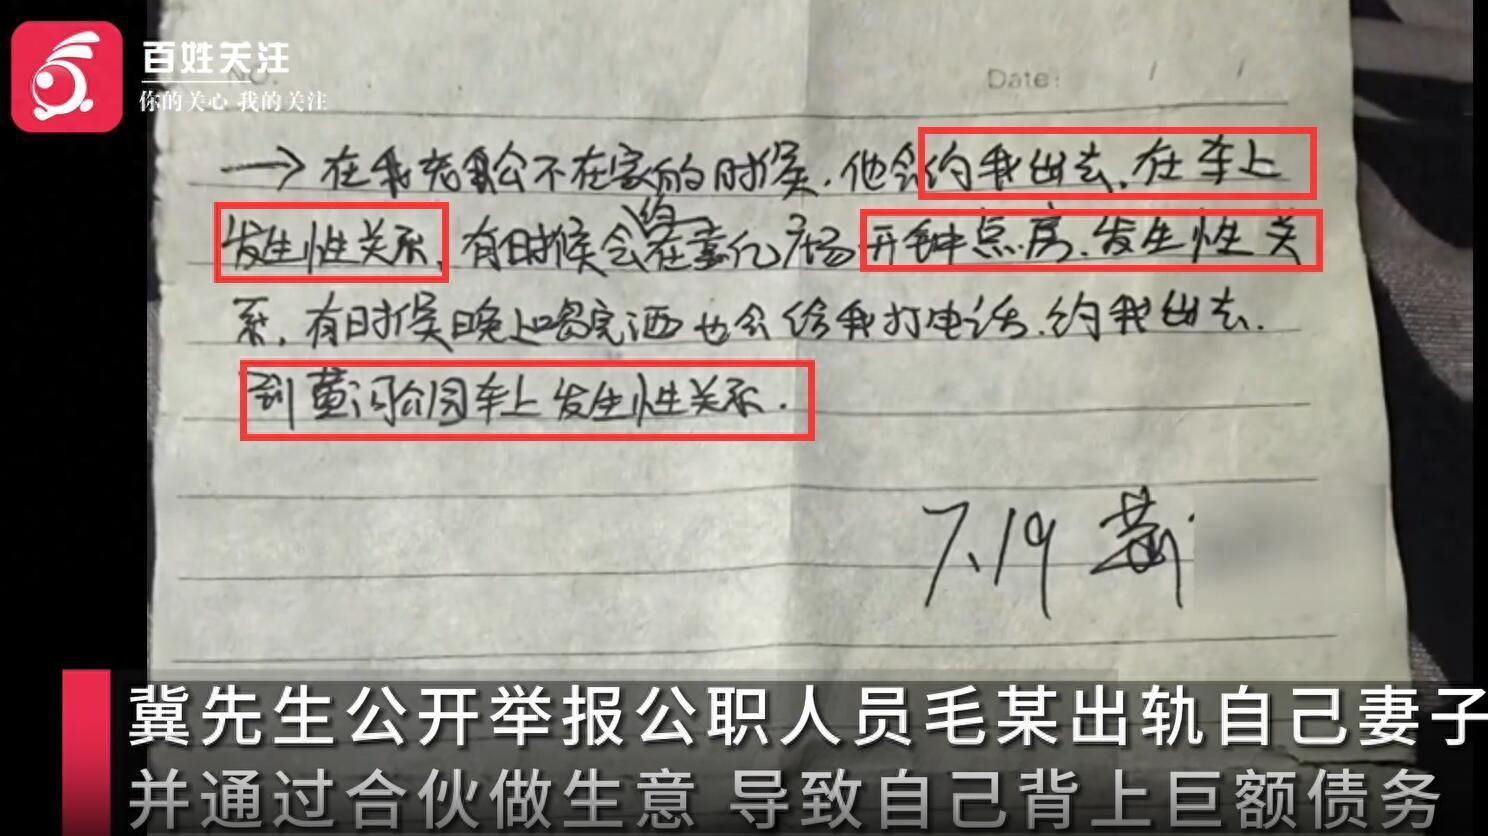 百姓关注
你的关心 我的关注
NO.
Date: / /
→ 在我老公不在家的时候，他会约我出去，在车上
发生性关系，有时候会约在嘉亿广场开钟点房，发生性关
系，有时候晚上喝完酒也会给我打电话，约我出去，
到黄河公园车上发生性关系．
7.19 黄
冀先生公开举报公职人员毛某出轨自己妻子
并通过合伙做生意 导致自己背上巨额债务